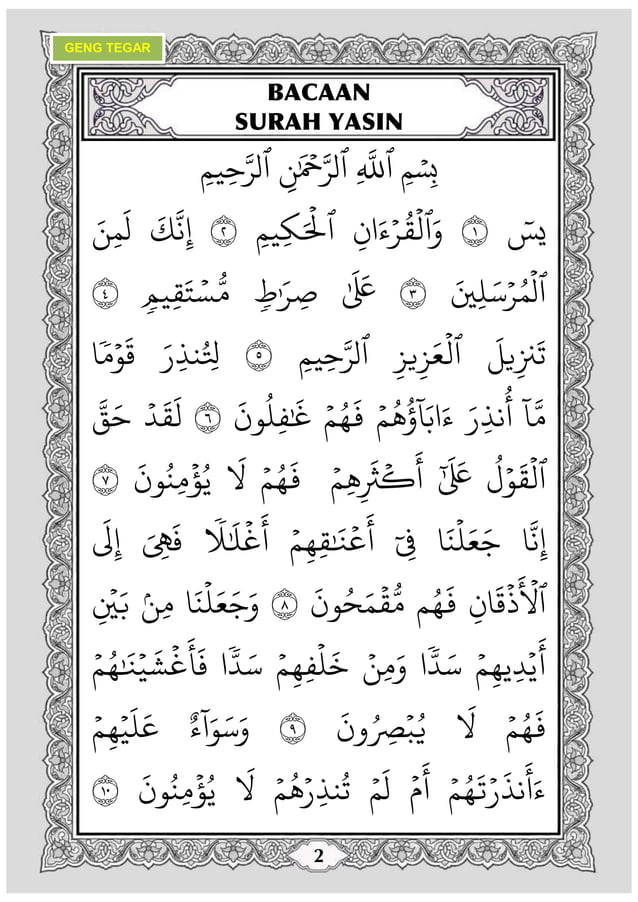 GENG TEGAR
BACAAN
SURAH YASIN
بِسۡمِ ٱللَّهِ ٱلرَّحۡمَٰنِ ٱلرَّحِيمِ
يسٓ ١ وَٱلۡقُرۡءَانِ ٱلۡحَكِيمِ ٢ إِنَّكَ لَمِنَ
ٱلۡمُرۡسَلِينَ ٣ عَلَىٰ صِرَٰطٖ مُّسۡتَقِيمٖ ٤
تَنزِيلَ ٱلۡعَزِيزِ ٱلرَّحِيمِ ٥ لِتُنذِرَ قَوۡمٗا
مَّآ أُنذِرَ ءَابَآؤُهُمۡ فَهُمۡ غَٰفِلُونَ ٦ لَقَدۡ حَقَّ
ٱلۡقَوۡلُ عَلَىٰٓ أَكۡثَرِهِمۡ فَهُمۡ لَا يُؤۡمِنُونَ ٧
إِنَّا جَعَلۡنَا فِيٓ أَعۡنَٰقِهِمۡ أَغۡلَٰلٗا فَهِيَ إِلَى
ٱلۡأَذۡقَانِ فَهُم مُّقۡمَحُونَ ٨ وَجَعَلۡنَا مِنۢ بَيۡنِ
أَيۡدِيهِمۡ سَدّٗا وَمِنۡ خَلۡفِهِمۡ سَدّٗا فَأَغۡشَيۡنَٰهُمۡ
فَهُمۡ لَا يُبۡصِرُونَ ٩ وَسَوَآءٌ عَلَيۡهِمۡ
ءَأَنذَرۡتَهُمۡ أَمۡ لَمۡ تُنذِرۡهُمۡ لَا يُؤۡمِنُونَ ١٠
2